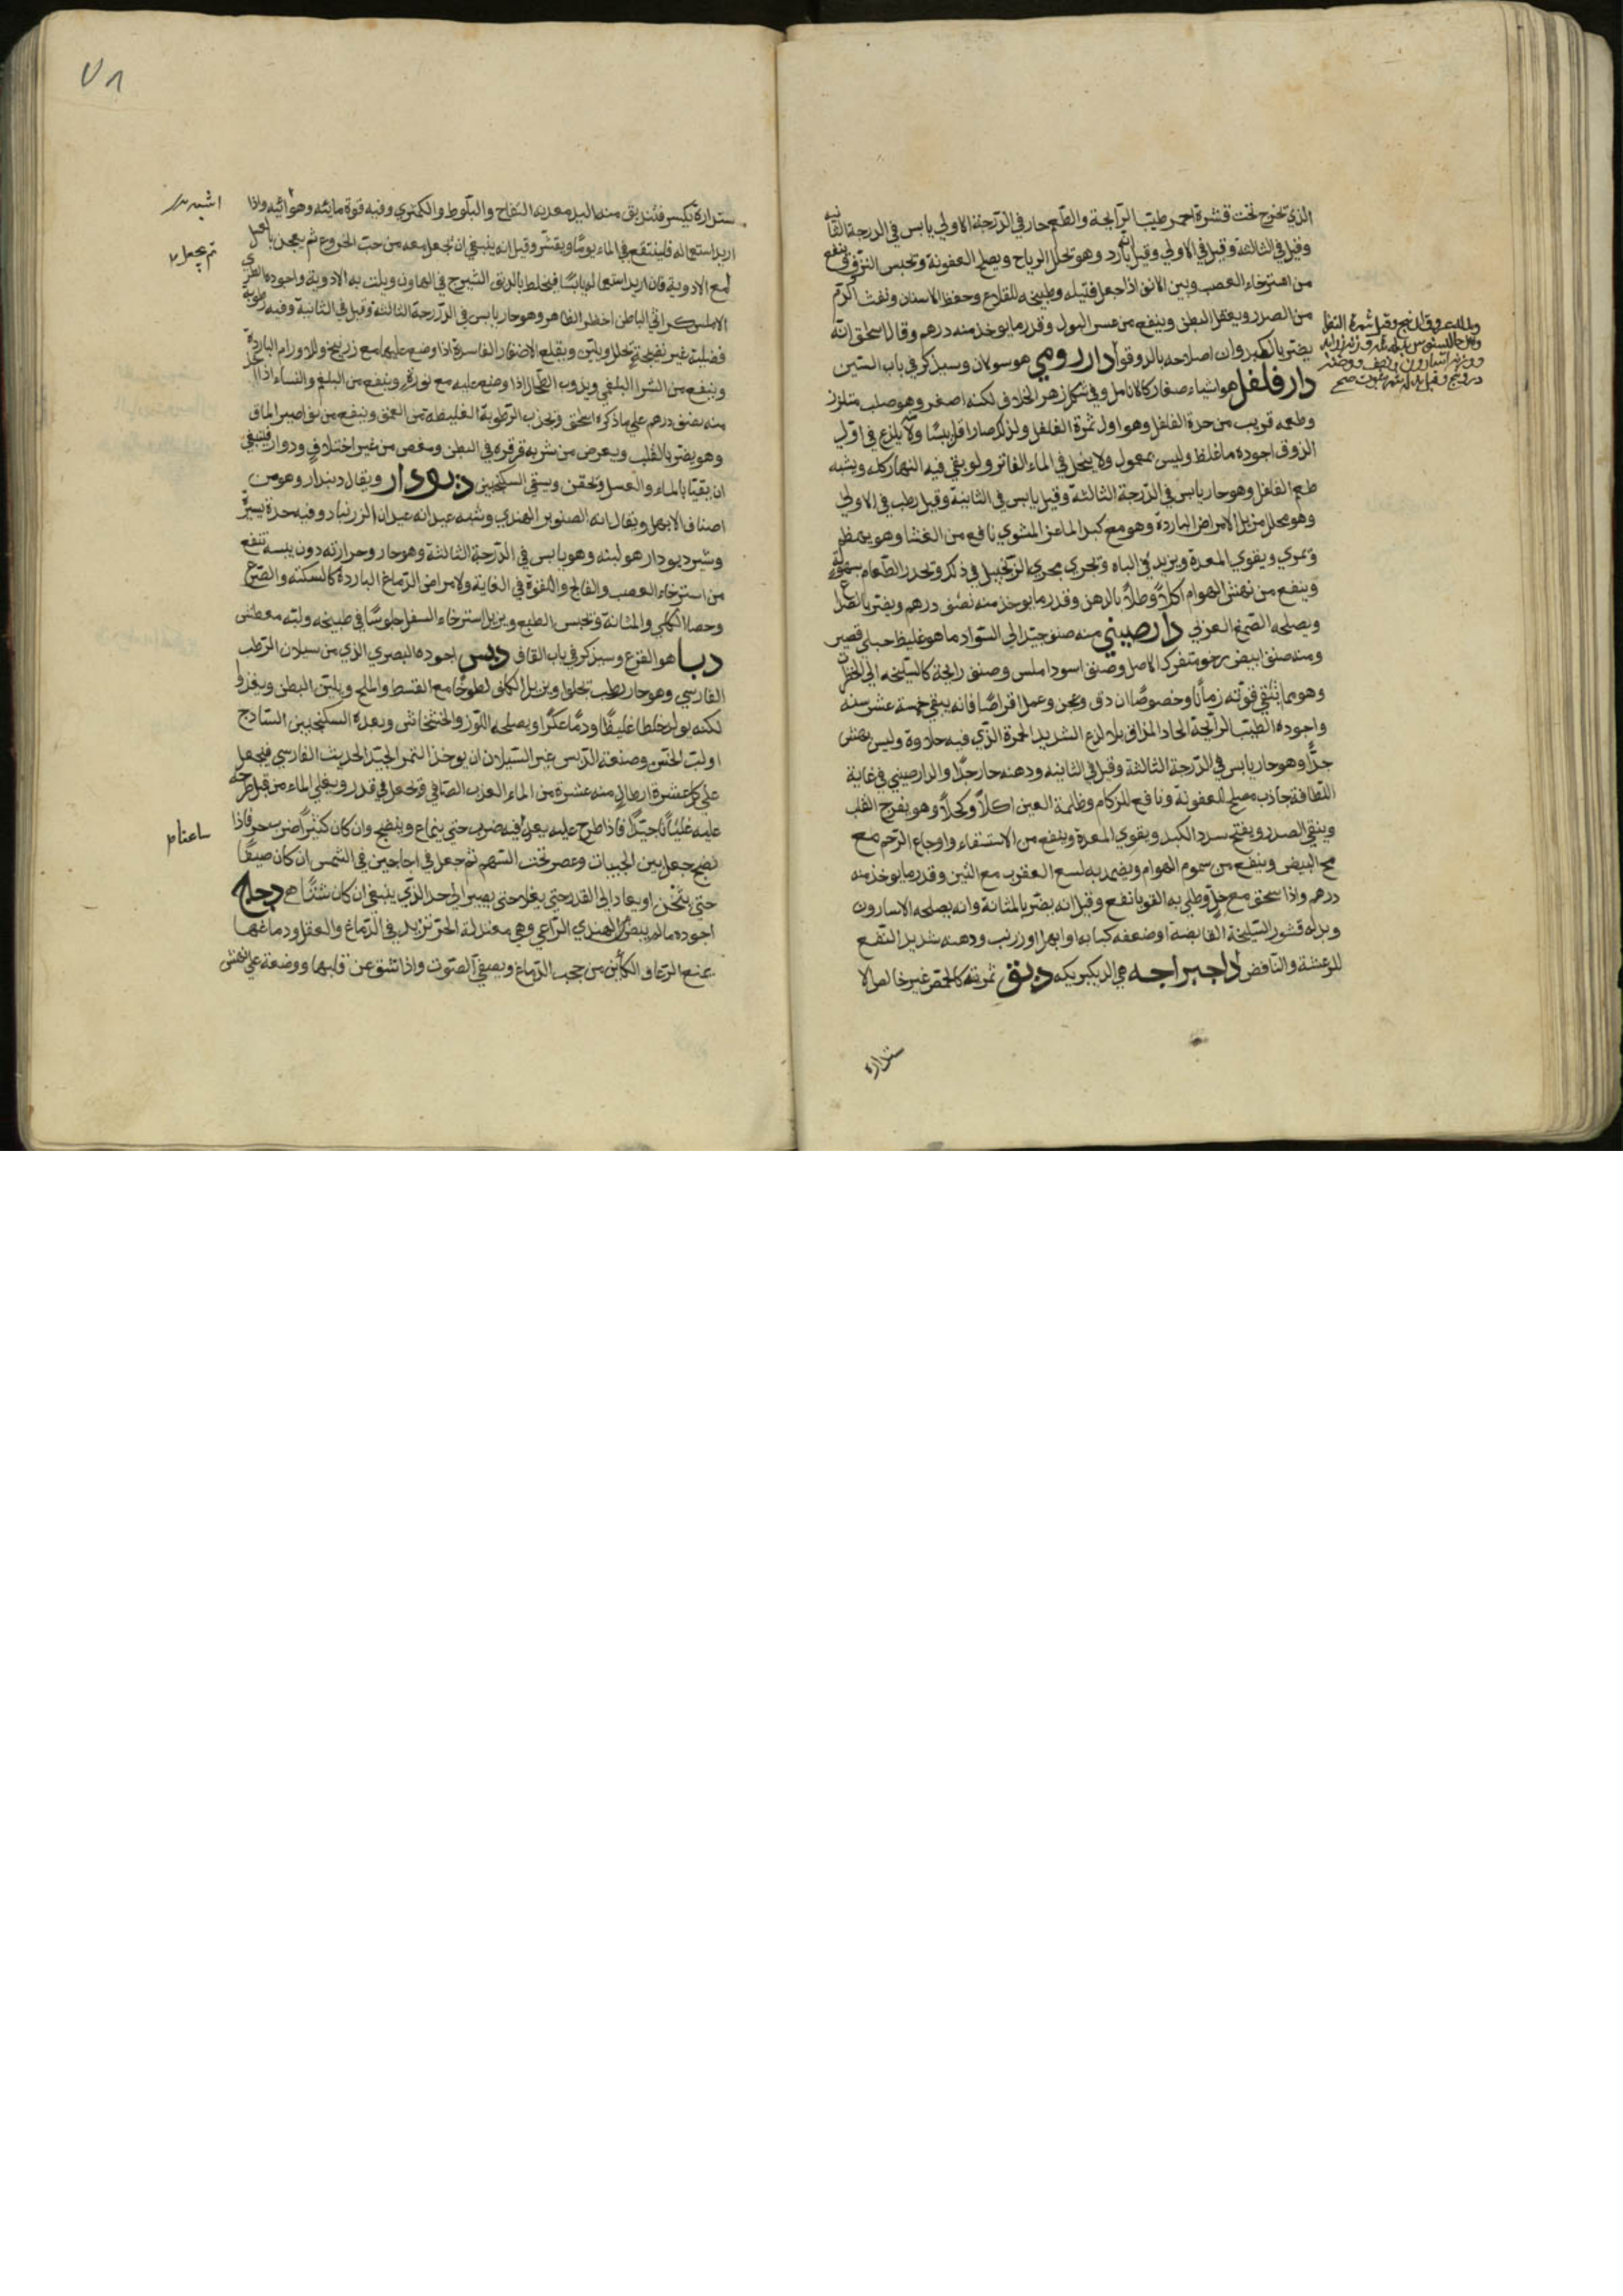 الذي تخرج تحت قشرة احمر طيب الرايحة والطعم حار في الدرجة الاولي يابس في الدرجة الثانيه
وقيل في الثالثة وقيل في الاولي وقيل انه بارد وهو تحلل الرياح ويصلح العفونة وتحبس النزف وينفع
من استرخاء العصب وبين الانف اذا جعل فتيله وطبيخه للقلاع وحفظ الاسنان ونفث الدم
من الصدر ويعقل البطن وينفع من عسر البول وقدر ما يوخذ منه درهم وقال اسحق انه
يضر بالكبد وان اصلاحه بالدوقوا دار رومي هو سولان وسيذكر في باب السين
دار فلفل هو اشياء صغار كالانامل وفي شكل زهر الخلاف لكنه اصغر وهو صلب متلزز
وطعمه قريب من حدة الفلفل وهو اول ثمرة الفلفل ولذلك صار اقل يبسًا ولا يلذع في اول
الذوق اجوده ما غلظ وليس بمعمول ولا ينحل في الماء الفاتر ولو بقي فيه النهار كله ويشبه
طعم الفلفل وهو حار يابس في الدرجة الثالثة وقيل يابس في الثانية وقيل رطب في الاولي
وهو محلل مزيل الامراض الباردة وهو مع كبد الماعز المشوي نافع من الغشا وهو يهضم
ويمري ويقوي المعدة ويزيد في الباه وتجري مجري الزنجبيل في ذلك وتحدر الطعام بسهولة
وينفع من نهش الهوام اكلاً وطلاً بالدهن وقدر ما يوخذ منه نصف درهم ويضر بالصداع
ويصلحه الصمغ العربي دارصيني منه صنف جيد الي السواد ما هو غليظ جبلي قصير
ومنه صنف ابيض رخو متفرك الاصل وصنف اسود املس وصنف رايحة كالسليخه الي الحمرة
وهو مما تبقي قوته زمانًا وخصوصًا ان دق وعجن وعمل اقراصًا فانه يبقي خمسة عشر سنه
واجوده الطيب الرايحة الحاد المذاق بلا لذع الشديد الحمرة الذي فيه حلاوة وليس بهش
جدًا وهو حار يابس في الدرجة الثالثة وقيل في الثانيه ودهنه حار جدًا والدارصيني في غاية
اللطافة جاذب مصلح للعفونة ونافع للزكام وظلمة العين اكلاً وكحلاً وهو يفرح القلب
وينقي الصدر ويفتح سدد الكبد ويقوي المعدة وينفع من الاستسقاء واوجاع الرحم مع
مح البيض وينفع من سموم الهوام ويضمد به لسع العقرب مع التين وقدر ما يوخذ منه
درهم واذا سحق مع خل وطلي به القوبا نفع وقيل انه يضر بالمثانة وانه يصلحه الاسارون
وبدله قشور السليخة القابضة او ضعفه كبابه او ابهل او زرنب ودهنه شديد النفع
للرعشة والنافض داجبراجه هي الديكبريكه دبق ثمرته كالحمص غير خالص الا
ستدارة
وقيل شمرة
ستدارة يكسر فتندبق منه اليد معدنه التفاح والبلوط والكمثري وفيه قوة مائيه وهوائيه واذا
اريد استعماله فلينقع في الماء يومًا ويقشر وقيل انه ينبغي ان يجعل معه من حب الخروع ثم يعجن
مع الادوية فان اريد استعماله يابسًا فيخلط بالدبق الشيرج في الهاون ويلت به الادوية واجوده الطري
الاملس كراثي الباطن اخضر الظاهر وهو حار يابس في الدرجة الثالثة وقيل في الثانية وفيه رطوبه
فضلية غير نضيجة تحلل ويلين ويقلع الاضفار الفاسدة اذا وضع عليها مع زرنيخ وللاورام الباردة
وينفع من الشرا البلغمي ويذوب الطحال اذا وضع عليه مع نورة وينفع من البلغم والنساء اذا اخذ
منه نصف درهم علي ما ذكره اسحق وتجذب الرطوبة الغليظه من العمق وينفع من نواصير الماق
وهو يضر بالقلب ويعرض من شربه قرقرة في البطن ومغص من غير اختلاف ودوار فينبغي
ان يقيا بالماء والعسل وتحقن ويسقي السكنجبين ديودار ويقال ديندار وهو من
اصناف الابهل ويقال انه الصنوبر الهندي وشبه عيدانه عيدان الزرنباد وفيه حدة يسيرة
وشير ديودار هو لبنه وهو يابس في الدرجة الثالثة وهو حار وحرارته دون يبسه تنفع
من استرخاء العصب والفالج واللقوة في الغاية ولامراض الدماغ الباردة كالسكته والصرع
وحصا الكلي والمثانة وتحبس الطبع ويزيل استرخاء السفل جلوسًا في طبيخه ولبنه معطش
دبا هو القرع وسيذكر في باب القاف دبس اجوده البصري الذي من سيلان الرطب
الفارسي وهو حار رطب تجلوا ويزيل الكلف لطوخًا مع القسط والملح ويلين البطن ويغذوا
لكنه يولد خلطا غليظًا ودمًا عكرًا ويصلحه اللوز والخشخاش وبعده السكنجبين الساذج
او لب الخس وصنعة الدبس غير السيلان ان يوخذ التمر الجيد الحديث الفارسي فيجعل
علي كل عشرة ارطال منه عشرة من الماء العذب الصافي وتجعل في قدر ويغلي الماء من قبل طرحه
عليه غليانًا جيدًا فاذا طرح عليه يعاد فيه ضرب حتي ينماع وينضج وان كان كثيرًا ضرب فاذا
نضج جعل بين الجبيات وعصر تحت السهم ثم جعل في اجاجين في الشمس ان كان صيفًا
حتي يثخن او يعاد الي القدر حتي يغلي حتي يصير الي حد الذي ينبغي ان كان شتاء دجاج
اجوده ما لم يبض الهندي الراعي وهي معتدلة الحر تزيد في الدماغ والعقل ودماغها
يمنع الرعاف الكاين من حجب الدماغ ويصفي الصوت واذا شق عن قلبها ووضعة علي نهش
ثم يجعل